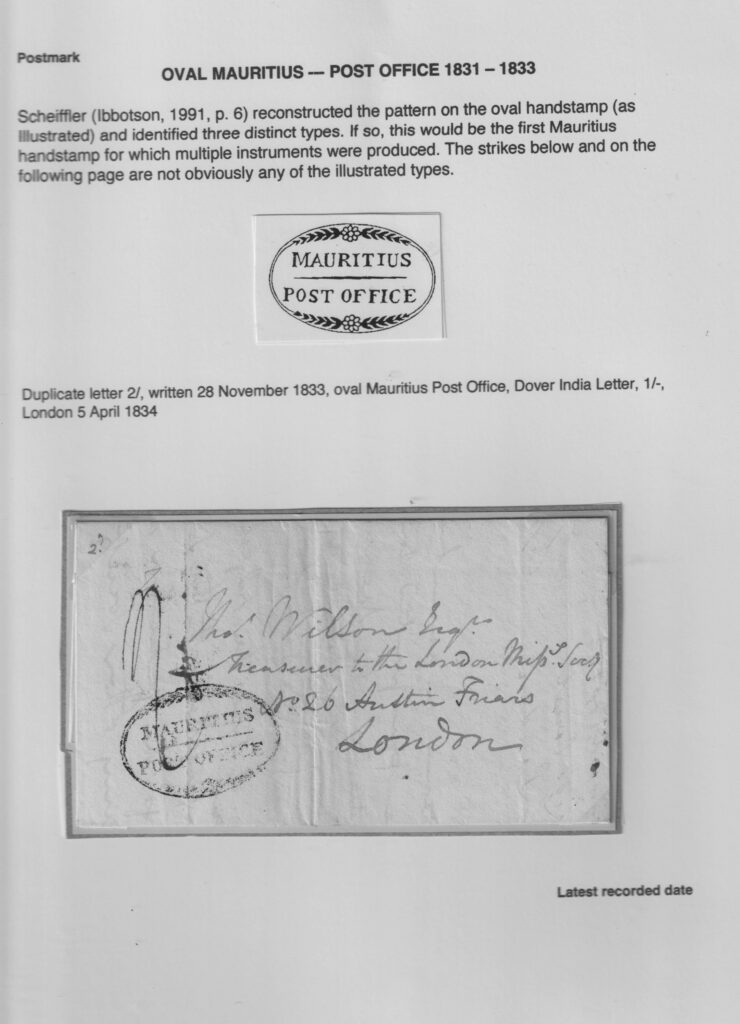 Postmark
OVAL MAURITIUS — POST OFFICE 1831 – 1833
Scheiffler (Ibbotson, 1991, p. 6) reconstructed the pattern on the oval handstamp (as
Illustrated) and identified three distinct types. If so, this would be the first Mauritius
handstamp for which multiple instruments were produced. The strikes below and on the
following page are not obviously any of the illustrated types.
MAURITIUS
POST OFFICE
Duplicate letter 2/, written 28 November 1833, oval Mauritius Post Office, Dover India Letter, 1/-,
London 5 April 1834
Thos. Wilson Esqre.
Treasurer to the London Missy. Socy
No. 26 Austin Friars
London
MAURITIUS
POST OFFICE
Latest recorded date